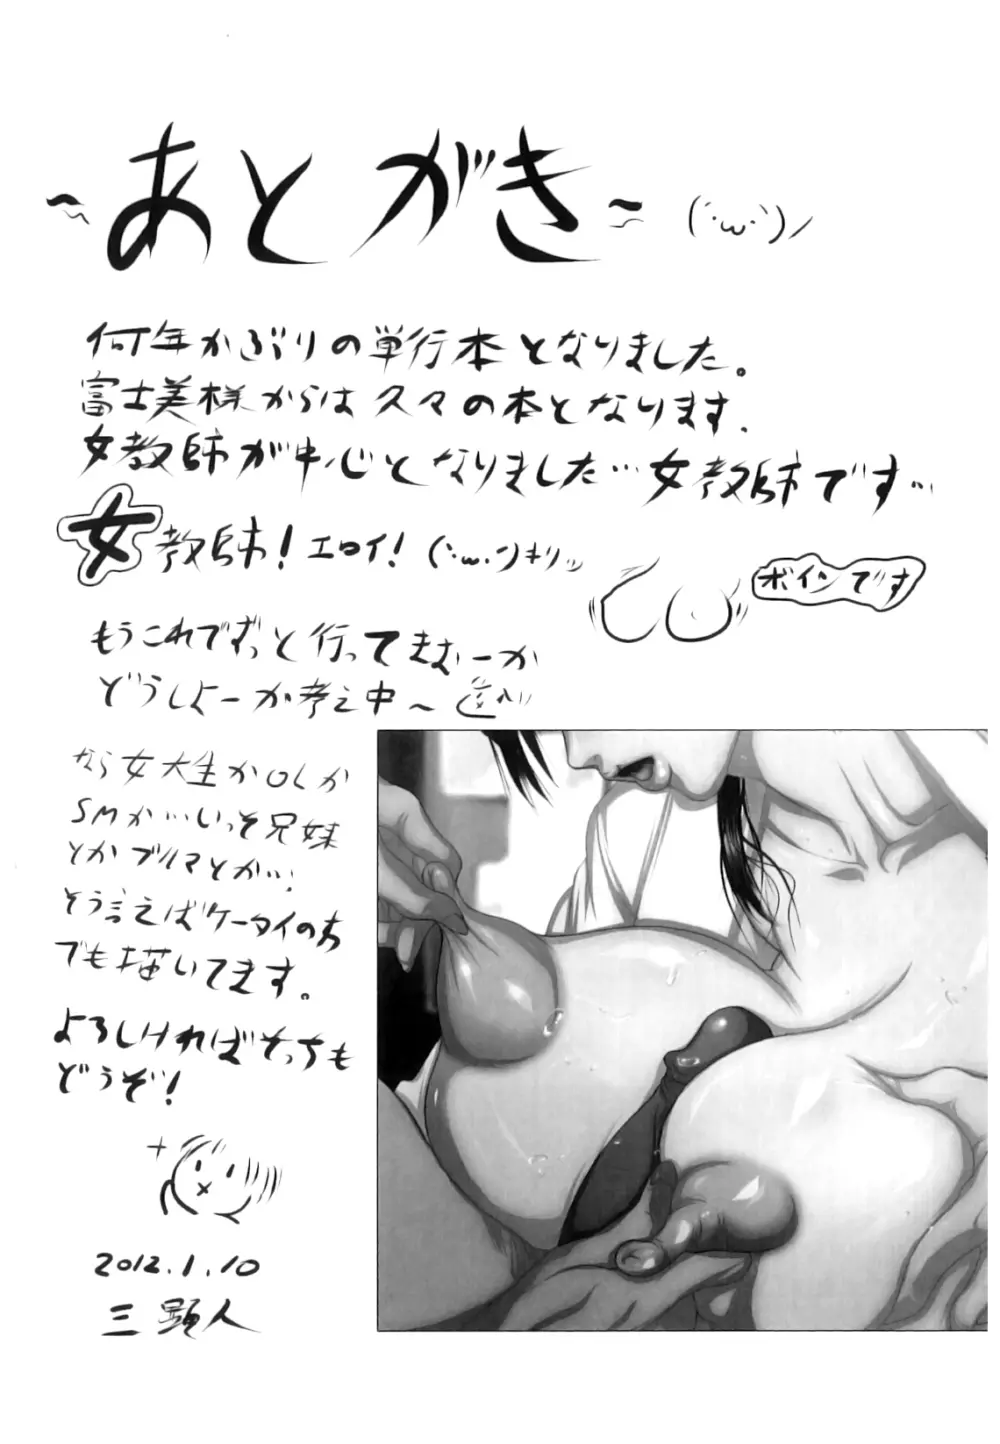 ～あとがき～ (´･ω･`)ノ
何年かぶりの単行本となりました。
富士美様からは久々の本となります.
女教師が中心となりました…女教師です…
女教師！エロイ！(`･ω･´)キリッ
ボインです
もうこれでずっと行ってきむーか
どうしよーか考え中～
なら女大生かOLか
SMか…いっそ兄妹
とかブルマとか…!
そう言えばケータイの方
でも描いてます。
よろしければそっちも
どうぞ！
2012.1.10
三顕人